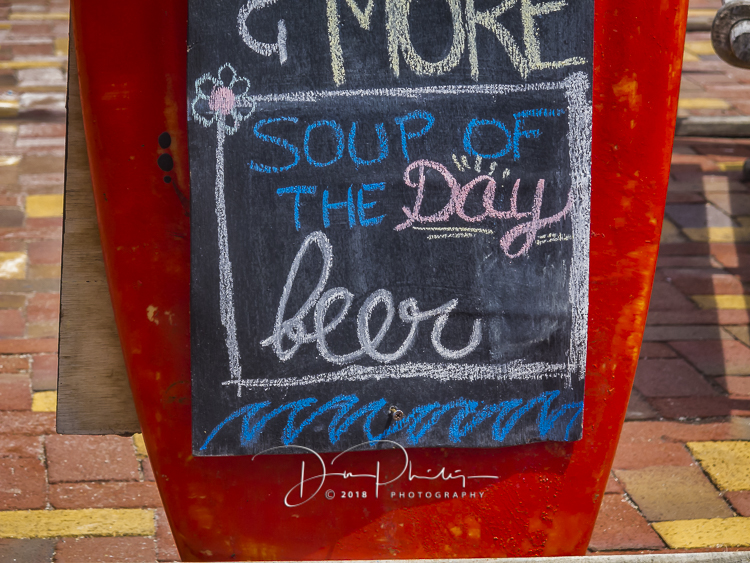 & MORE
SOUP OF
THE Day
beer
© 2018 PHOTOGRAPHY